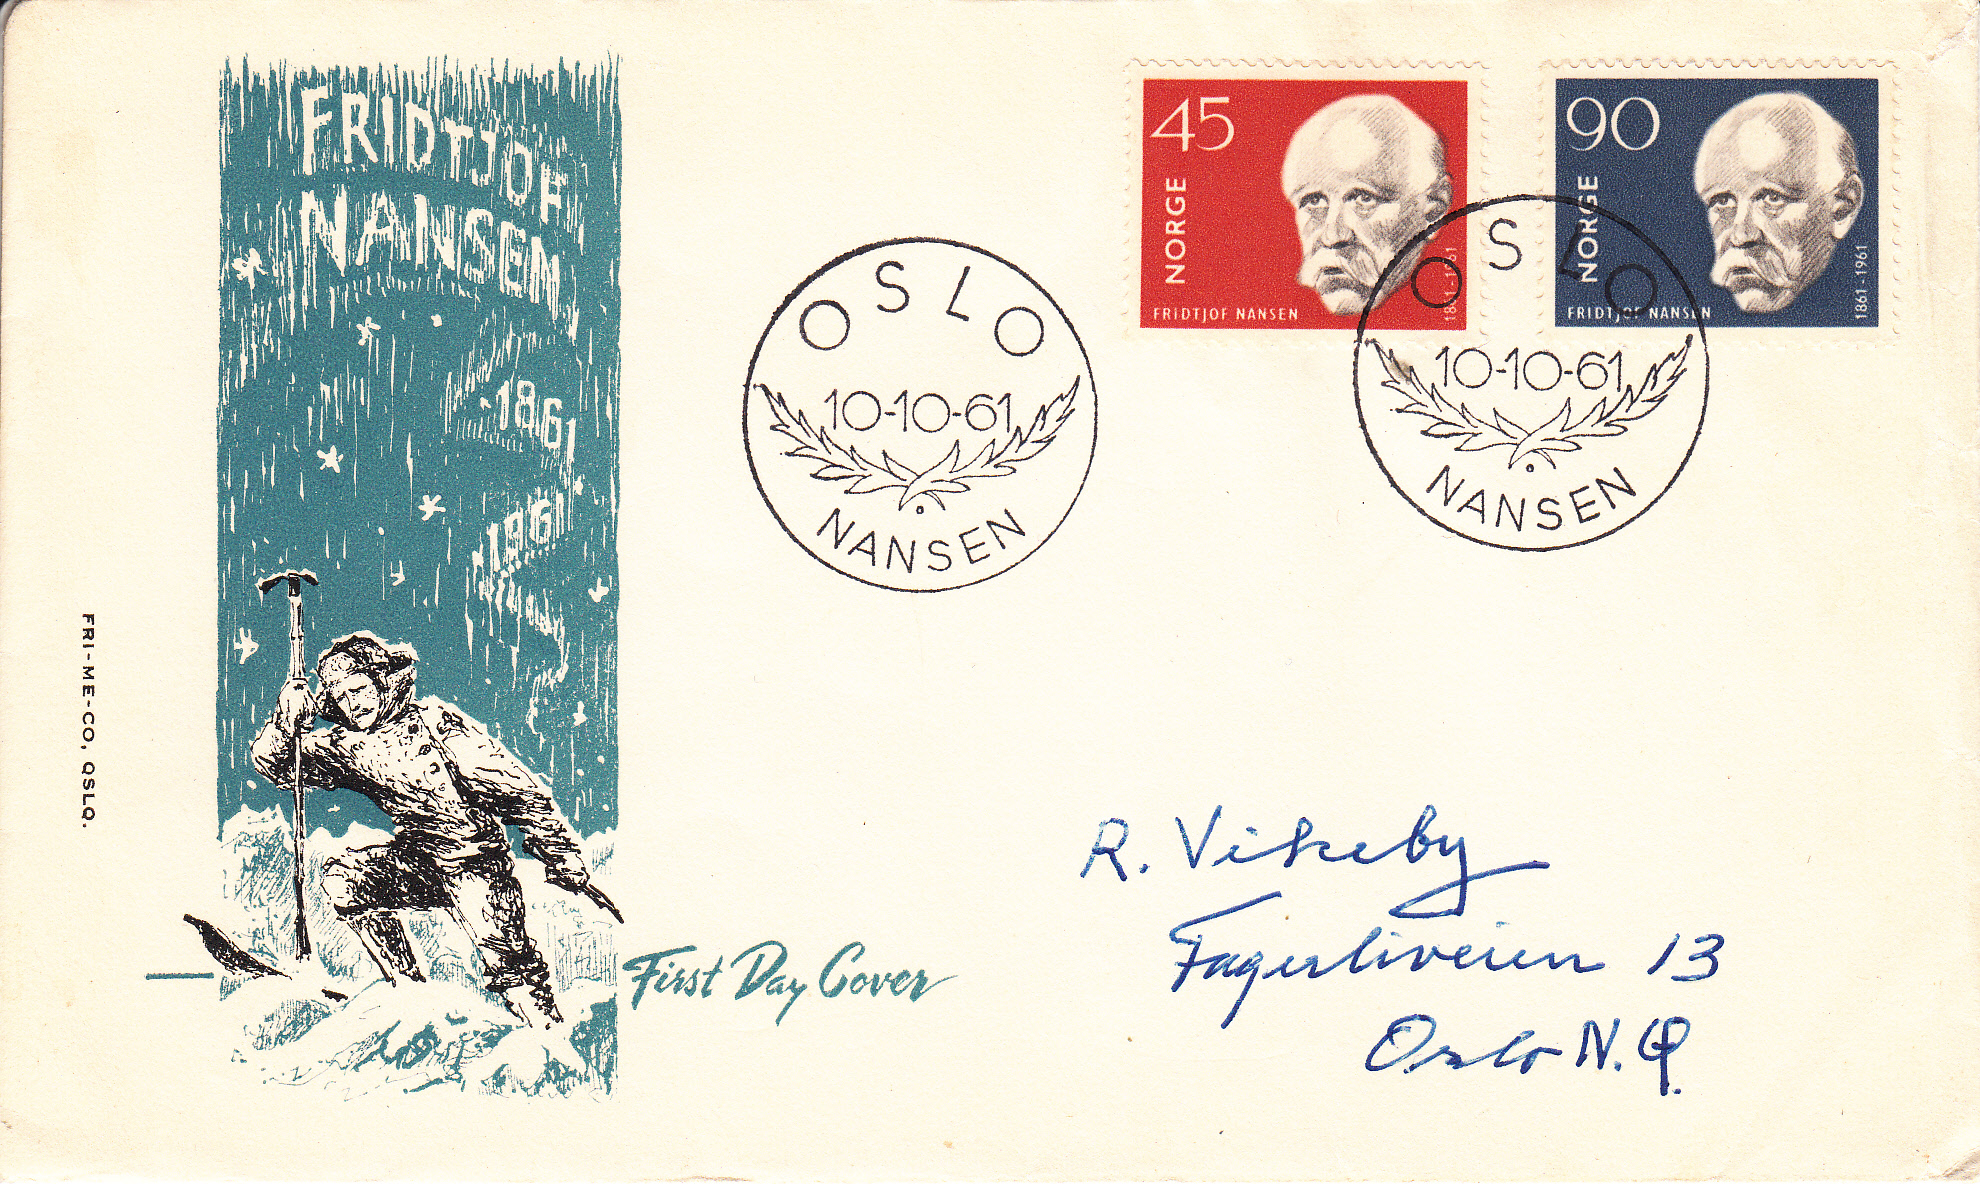 FRIDTJOF
NANSEN
1861
1961
FRI-ME-CO, OSLO.
First Day Cover
OSLO
10-10-61
NANSEN
45
NORGE
FRIDTJOF NANSEN
1861-1961
90
NORGE
FRIDTJOF NANSEN
1861-1961
OSLO
10-10-61
NANSEN
R. Vikeby
Fagerliveien 13
Oslo N. Ø.